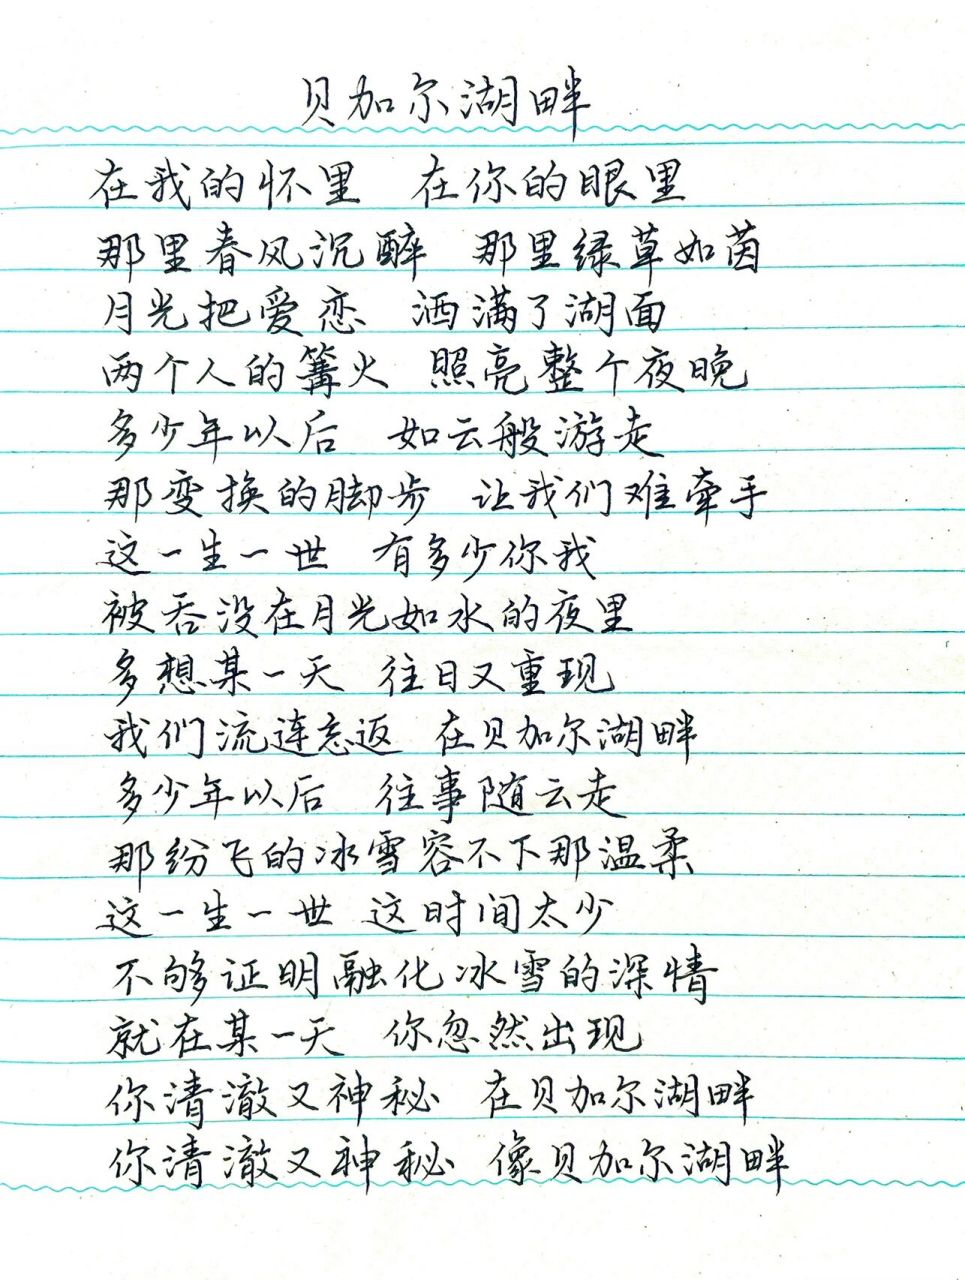 贝加尔湖畔
在我的怀里 在你的眼里
那里春风沉醉 那里绿草如茵
月光把爱恋 洒满了湖面
两个人的篝火 照亮整个夜晚
多少年以后 如云般游走
那变换的脚步 让我们难牵手
这一生一世 有多少你我
被吞没在月光如水的夜里
多想某一天 往日又重现
我们流连忘返 在贝加尔湖畔
多少年以后 往事随云走
那纷飞的冰雪容不下那温柔
这一生一世 这时间太少
不够证明融化冰雪的深情
就在某一天 你忽然出现
你清澈又神秘 在贝加尔湖畔
你清澈又神秘 像贝加尔湖畔